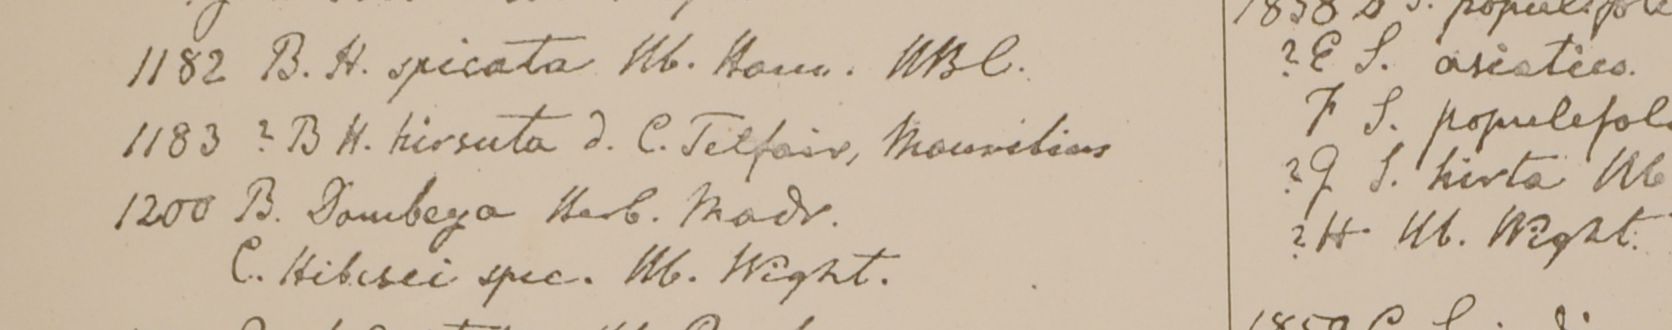 1182 B. H. spicata Hb. Ham. HBC.
1183 ? B H. hirsuta d. C. Telfair, Mauritius
1200 B. Dombeya Herb. Madr.
C. Hibisci spec. Hb. Wight.
1858 D S. populifol
? E S. asiatica.
F S. populifol
? G S. hirta Hb
? H Hb. Wight.